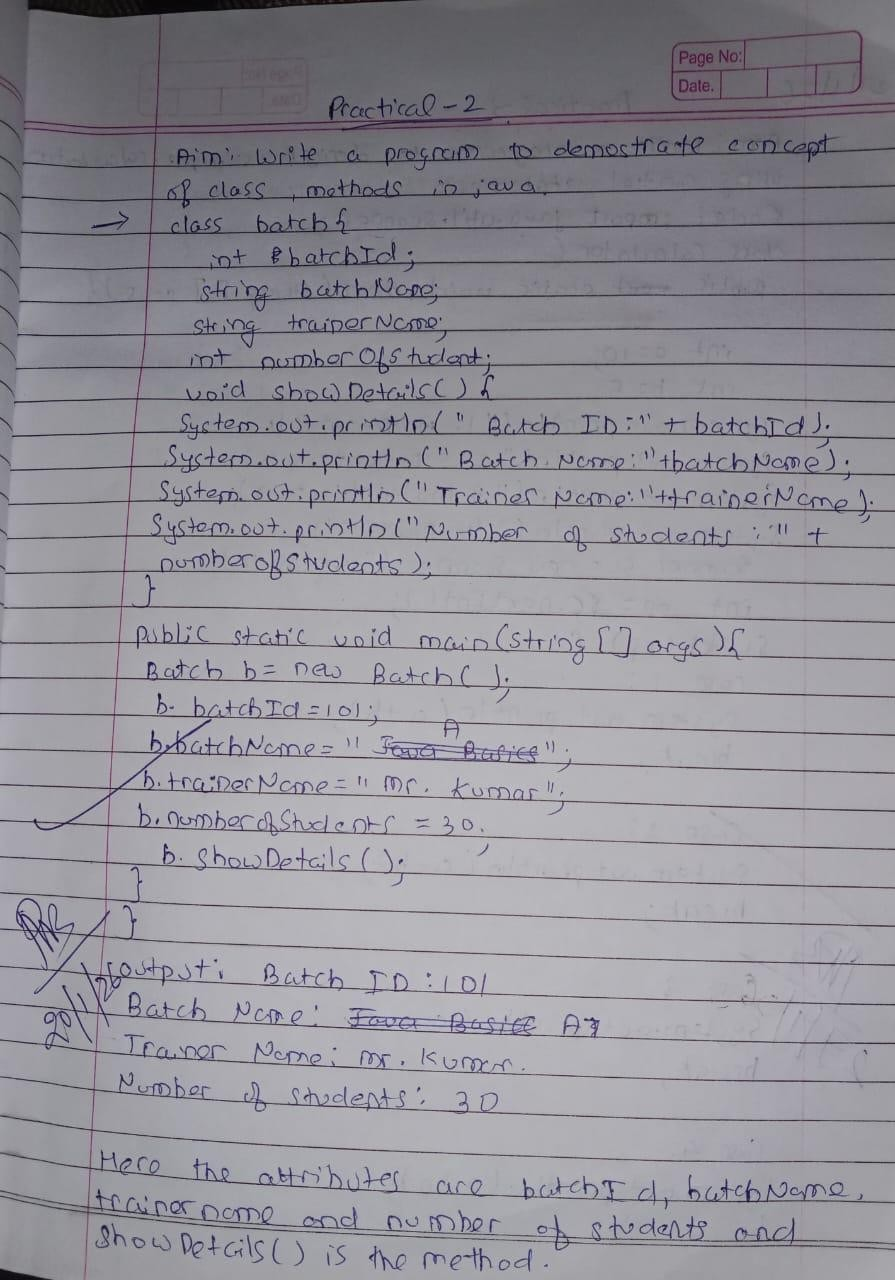 Page No:
Date.
Practical-2
Aim: Write a program to demostrate concept
of class, methods in java.
→ class batch{
int batchId;
string batchName;
string trainerName;
int numberOfStudent;
void showDetails() {
System.out.println(" Batch ID:" + batchId);
System.out.println("Batch Name:"+batchName);
System.out.println("Trainer Name:"+trainerName);
System.out.println("Number of students :" +
numberofStudents);
}
public static void main(String [] args){
Batch b= new Batch();
b. batchId=101;
A
b.batchName=" Java Basics";
b.trainerName=" Mr. Kumar";
b.numberofStudents = 30;
b. showDetails();
}
}
output: Batch ID:101
Batch Name: Java Basics A
Trainer Name: mr. Kumar.
Number of students: 30
Here the attributes are batchId, batchName,
trainer name and number of students and
showDetails() is the method.